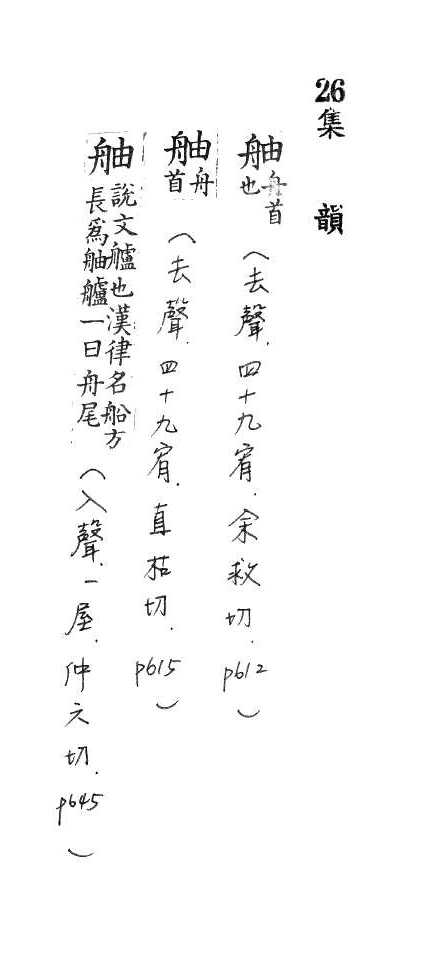 26集 韻
舳 舟首也 (去聲.四十九宥.余救切.p612)
舳 舟首 (去聲.四十九宥.直祐切.p615)
舳 說文艫也漢律名船方長爲舳艫一曰舟尾 (入聲.一屋.仲六切.p645)